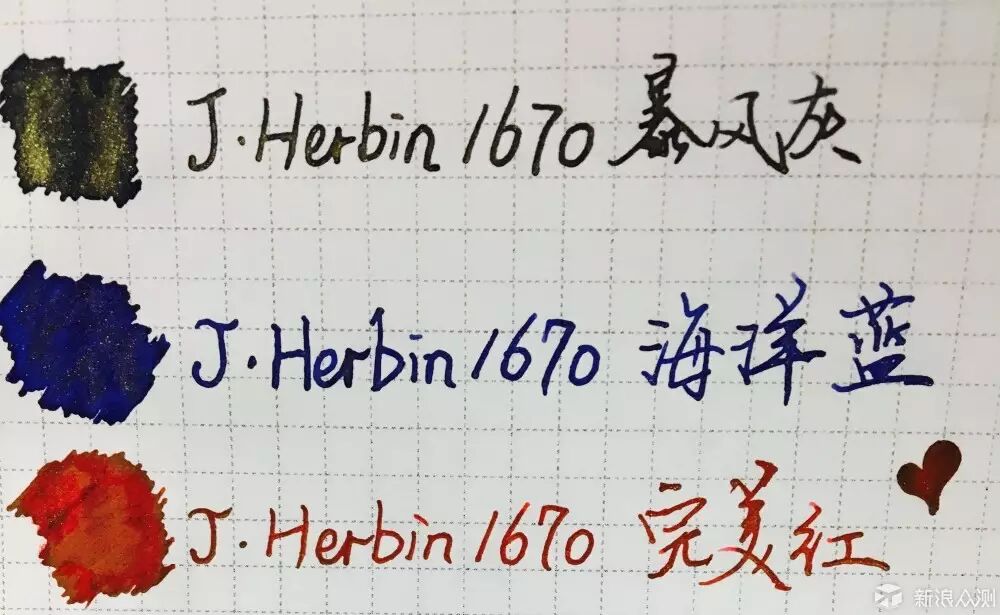 J.Herbin 1670 暴风灰
J.Herbin 1670 海洋蓝
J.Herbin 1670 完美红
新浪众测